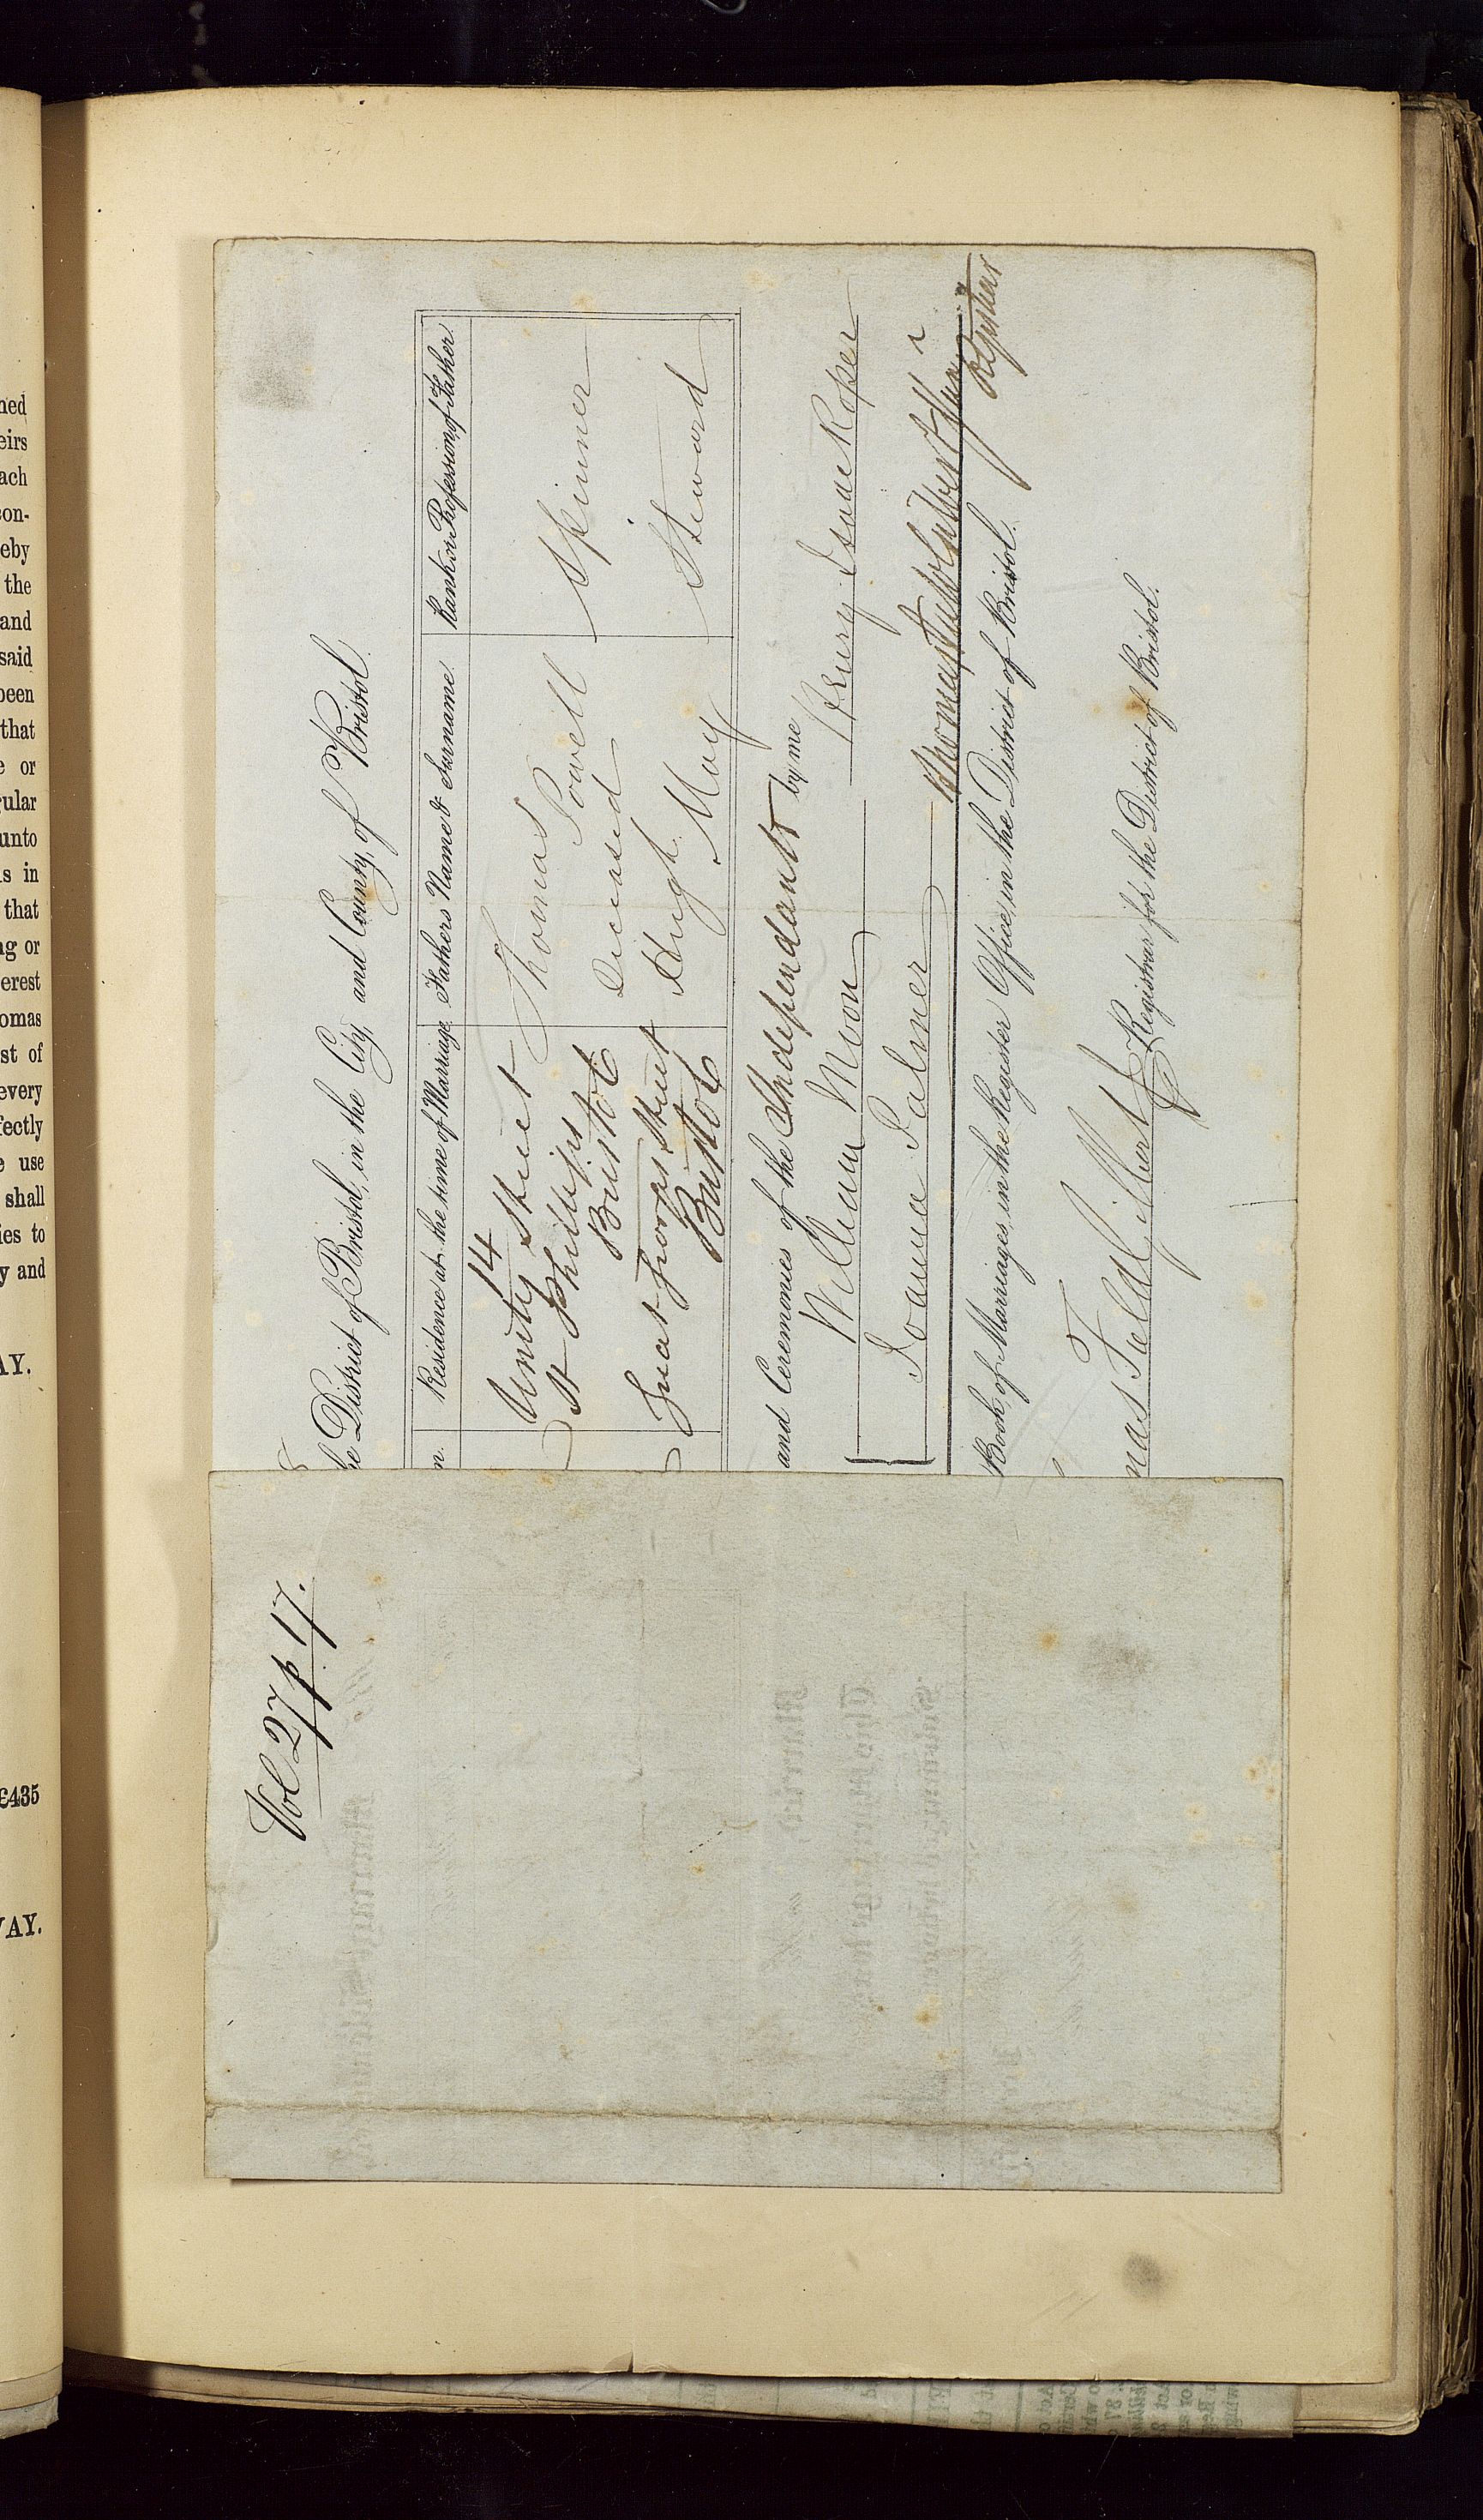 ned
eirs
ach
con-
eby
the
and
said
been
that
e or
gular
unto
ls in
that
ng or
erest
omas
st of
every
fectly
e use
shall
ies to
y and
AY.
£435
WAY.
he District of Bristol, in the City, and County, of Bristol.
n. Residence at the time of Marriage. Fathers Name & Surname. Rank or Profession of Father.
14
Unity Street
St Phillips
Bristol
Thomas
Powell
Deceased
Spinner
Great George Street
Bristol
Hugh May
Steward
and Ceremonies of the Independants by me
William Moon
Joanna Palmer
Henry Isaac Roper
Registrar
Book, of Marriages, in the Register Office, in the District of Bristol.
mas Tuld Gilbert Registrar for the District of Bristol.
Vol 27 p. 17.